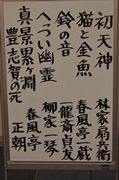 初天神 林家扇兵衛
猫と金魚 春風亭一蔵
鈴の音 一龍斎貞友
へっつい幽霊 柳家一琴
真景累ヶ淵 春風亭
豊志賀の死 正朝